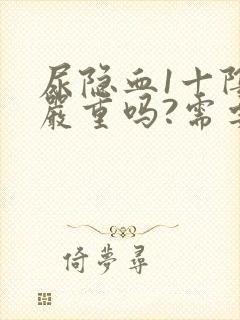 尿隐血1十阳
严重吗?需要
倚夢尋